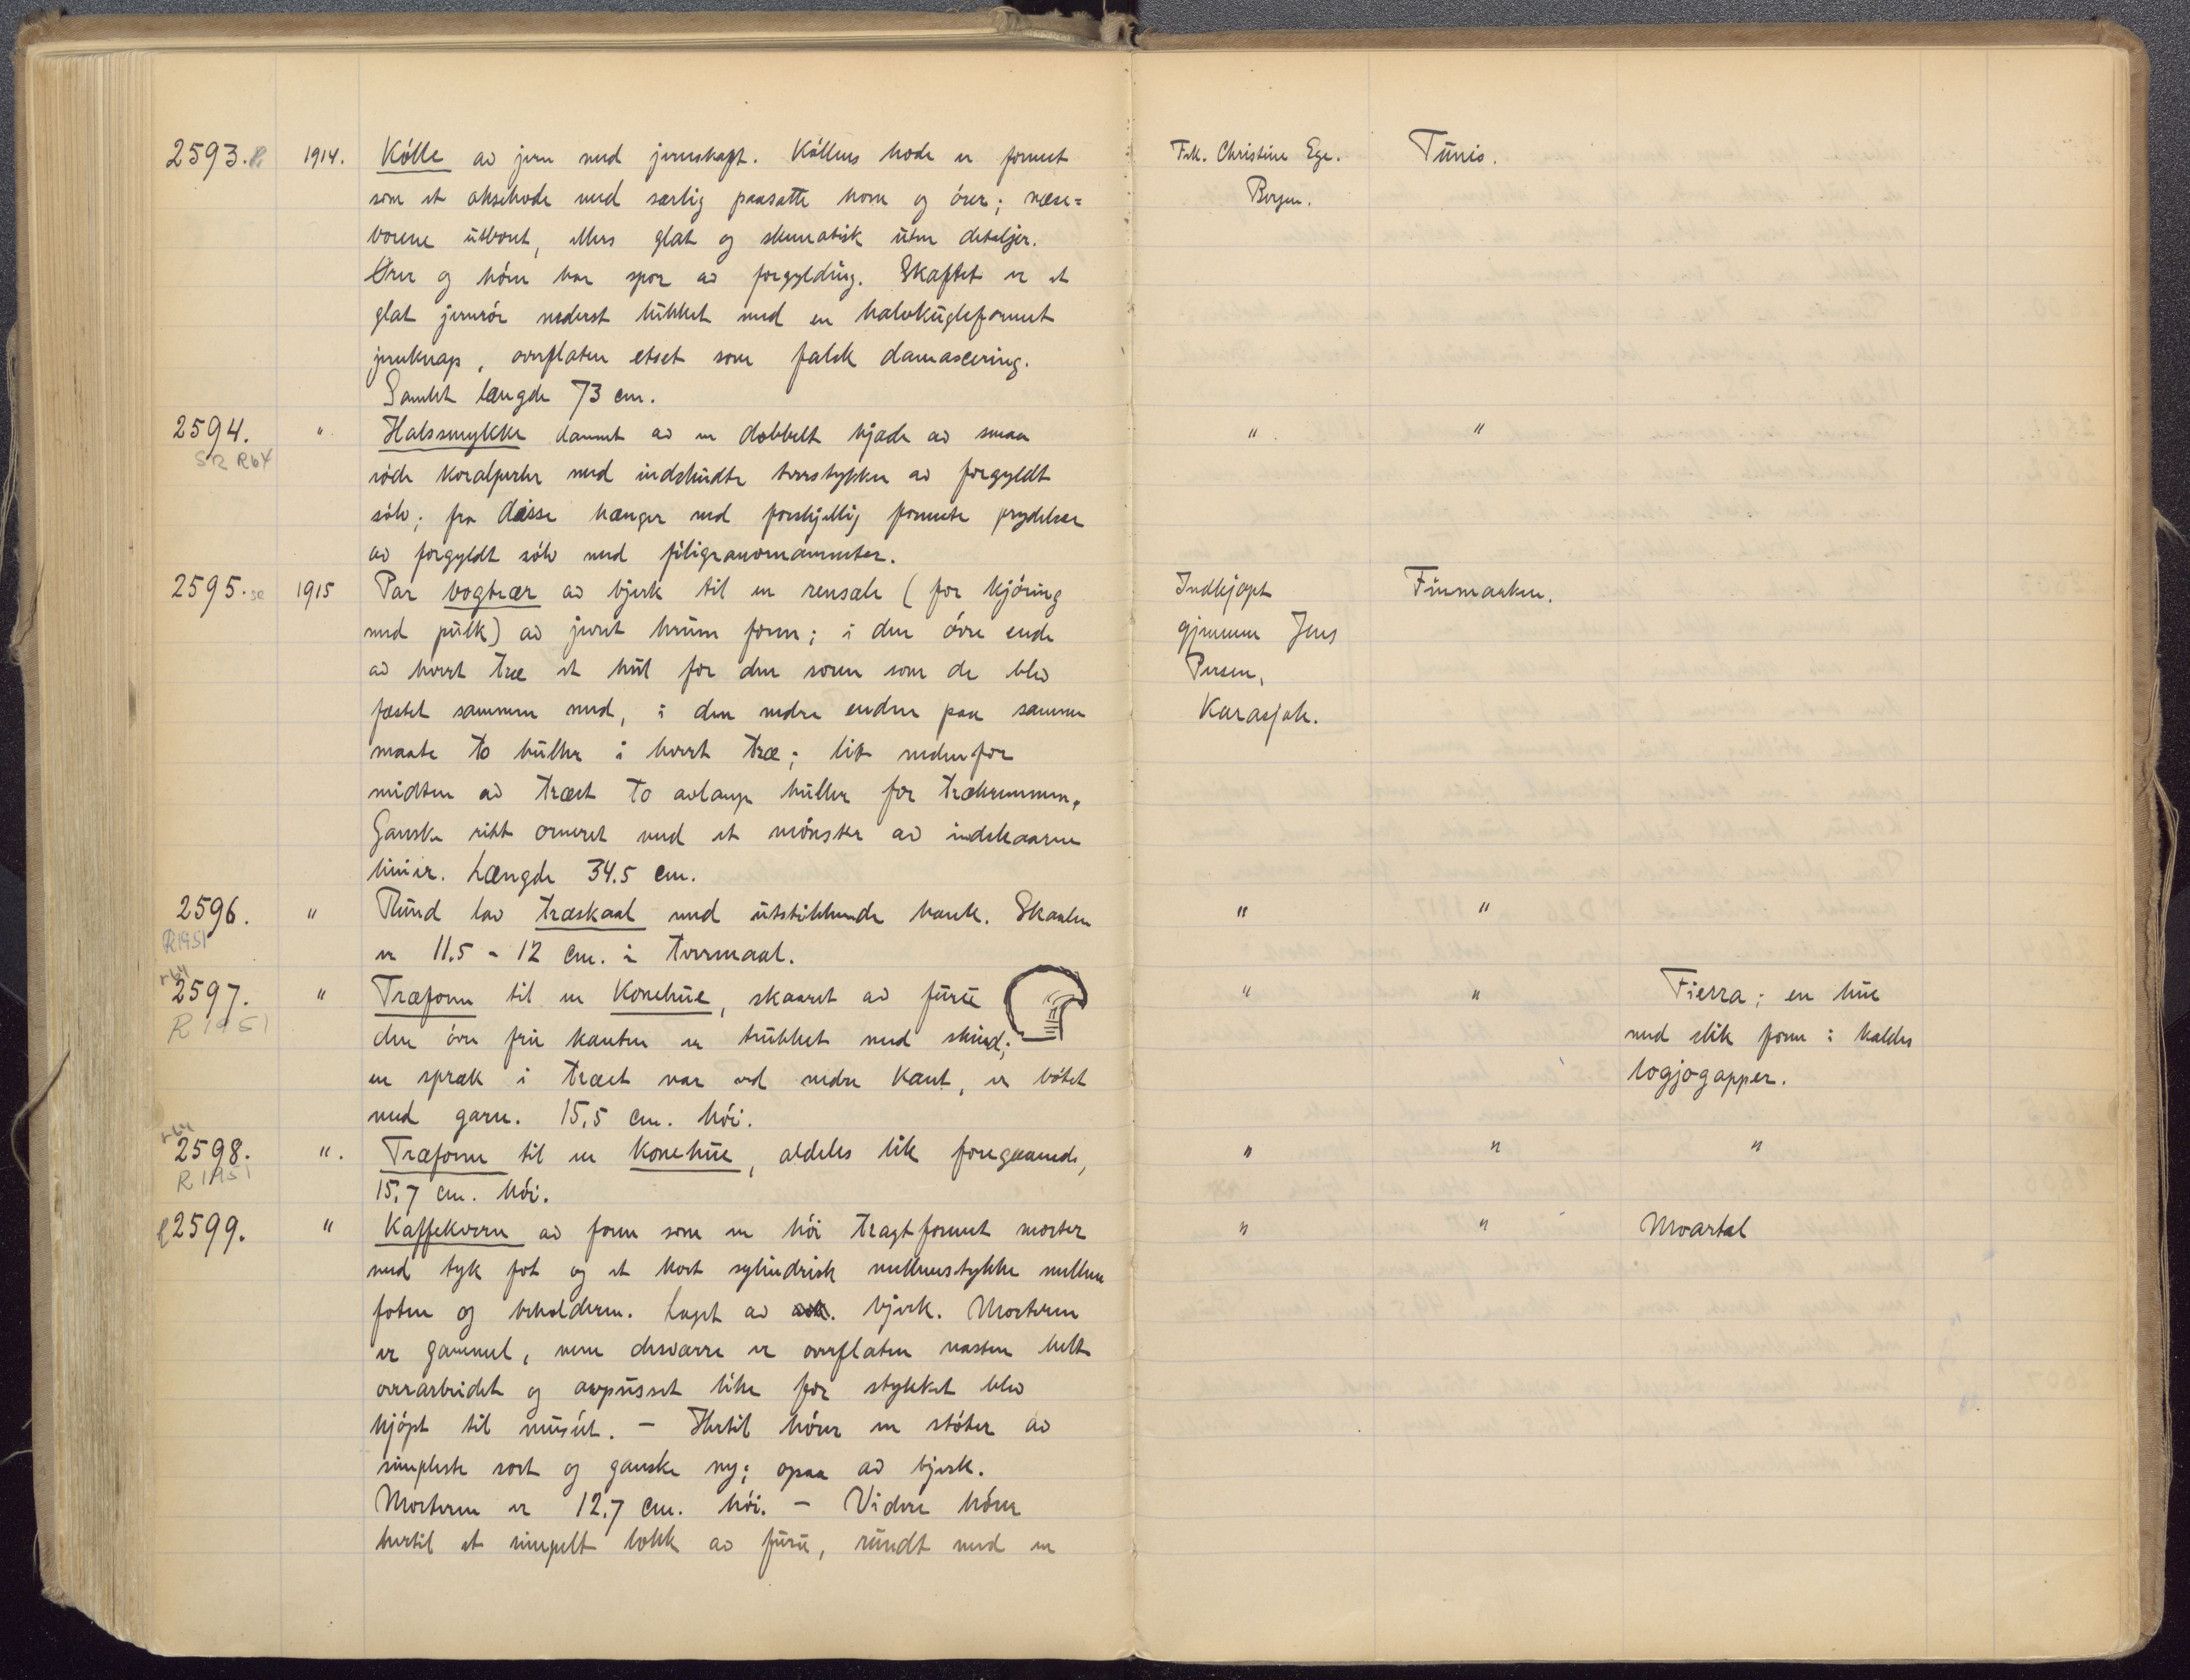 2593. R 1914. Kölle av jern med jernskaft. Köllens hode er formet Frk. Christine Ege. Tunis.
som et oksehode med særlig paasatte horn og örer; næse= Bergen.
borene utboret, ellers glat og skematisk uten detaljer.
Örer og hörn har spor av forgylding. Skaftet er et
glat jernrör nederst lukket med en halvkugleformet
jernknap, overflaten etset som falsk damascering.
Samlet længde 73 cm.
2594. " Halssmykke dannet av en dobbelt kjæde av smaa " "
SR R64
röde koralperler med indskudte tverstykker av forgyldt
sölv; fra disse hænger ned forskjellig formete prydelser
av forgyldt sölv med filigranornamenter.
2595. se 1915 Par bogtrær av bjerk til en rensele (for kjöring Indkjøpt Finmarken.
med pulk) av jevnt krum form; i den övre ende gjennem Jens
av hvert træ et hul for den som de blev Persen,
fæstet sammen med, i den nedre enden paa samme Karasjok.
maate to huller i hvert træ; litt nedenfor
midten av træet to avlange huller for trækremmen.
Ganske rikt orneret med et mönster av indskaarne
linier. Længde 34.5 cm.
2596. " Rund lav træskaal med utstikkende hank. Skaalen " "
R1951
er 11.5 - 12 cm. i tvermaal.
r64
2597. " Træform til en konehue, skaaret av furu " " Fierra; en hue
R 1951
den övre frie kanten er trukket med skind; med slik form i kaldes
en spræk i træet nær ved nedre kant, er bötet logjogapper.
med garn. 15,5 cm. höi.
r64
2598. ". Træform til en konehue, aldeles lik foregaaende, " " "
R 1951
15.7 cm. höi.
R 2599. " Kaffekvern av form som en höi tragtformet morter " " Moartal
med tyk fot og et kort sylindrisk mellemstykke mellem
foten og beholderen. Laget av bjerk. Morteren
er gammel, men desværre er overflaten næsten helt
overarbeidet og avpusset like för stykket blev
kjöpt til museet. - Hertil hörer en stöter av
simpleste sort og ganske ny; ogsaa av bjerk.
Morteren er 12,7 cm. höi. - Videre hörer
hertil et simpelt lokk av furu, rundt med en